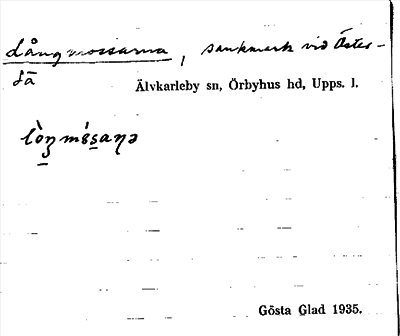 Långmossarna, sankmark vid Öster-
då
Älvkarleby sn, Örbyhus hd, Upps. l.
lòŋmósaṇə
Gösta Glad 1935.